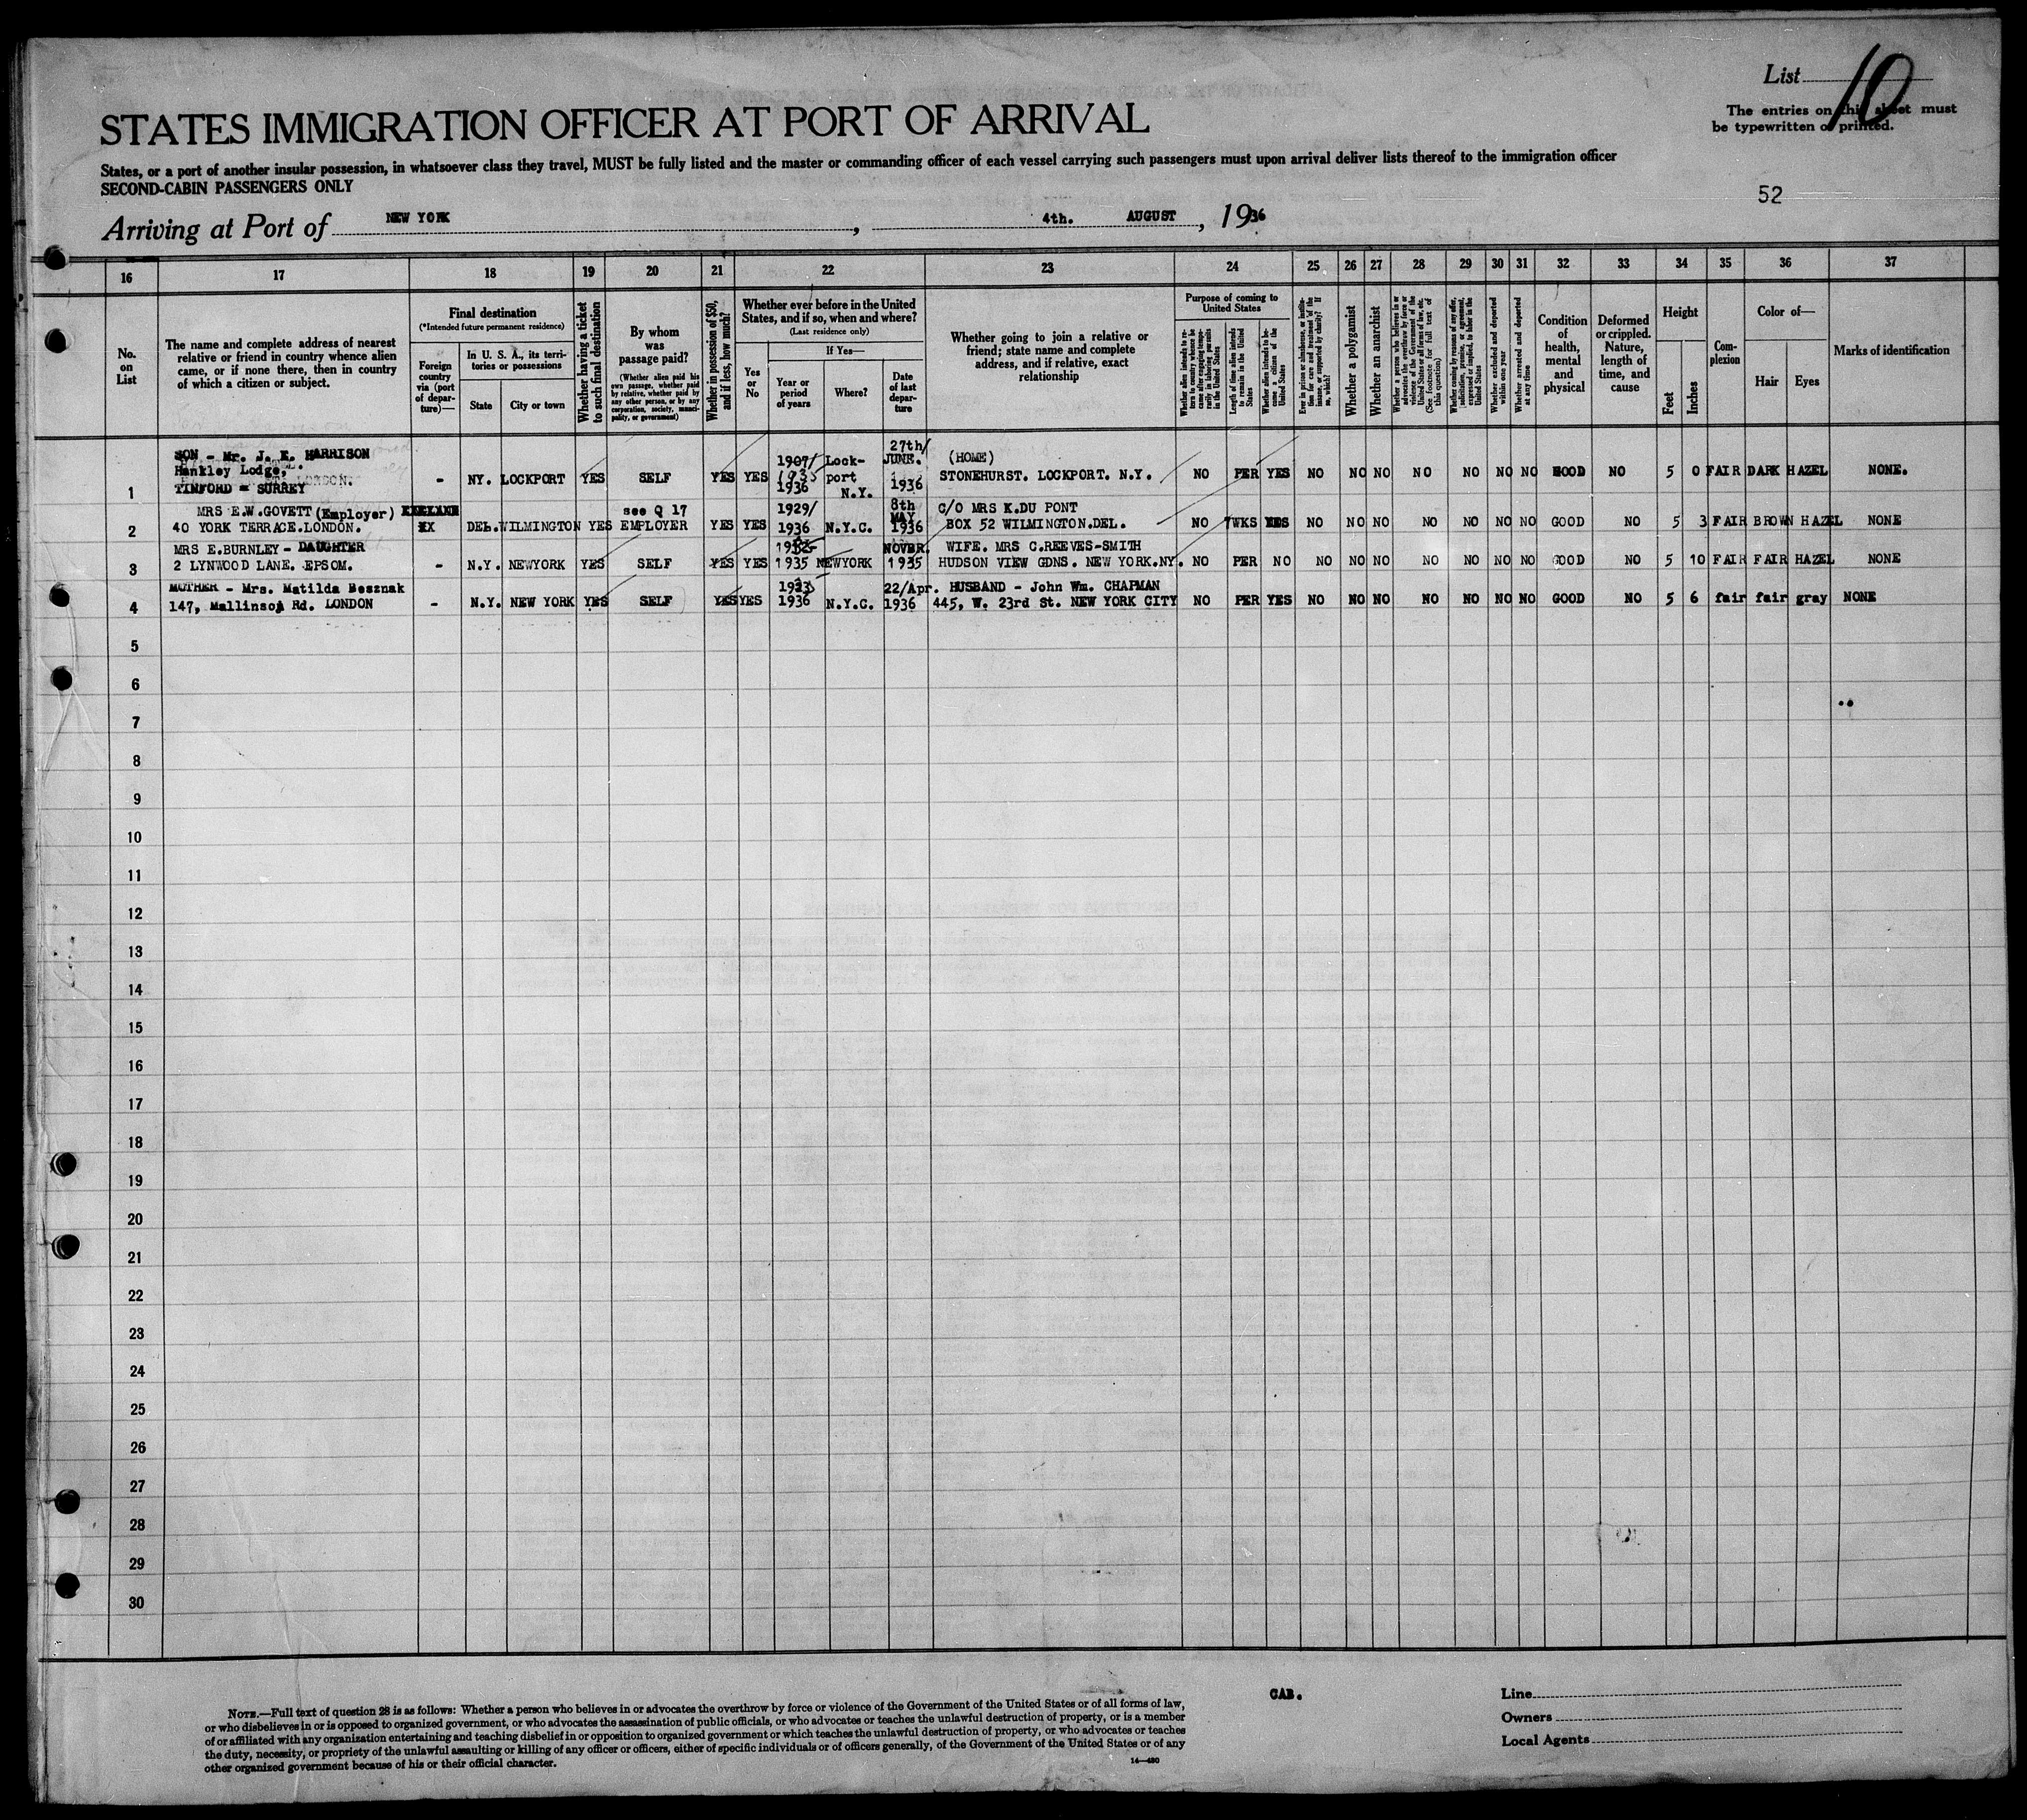 List 10
The entries on this sheet must
be typewritten or printed.
STATES IMMIGRATION OFFICER AT PORT OF ARRIVAL
States, or a port of another insular possession, in whatsoever class they travel, MUST be fully listed and the master or commanding officer of each vessel carrying such passengers must upon arrival deliver lists thereof to the immigration officer
SECOND-CABIN PASSENGERS ONLY
52
Arriving at Port of NEW YORK, 4th. AUGUST, 1936
16 17 18 19 20 21 22 23 24 25 26 27 28 29 30 31 32 33 34 35 36 37
No. on List
The name and complete address of nearest
relative or friend in country whence alien
came, or if none there, then in country
of which a citizen or subject.
Final destination
(*Intended future permanent residence)
Foreign country via (port of departure)—
In U. S. A., its territories or possessions
State
City or town
Whether having a ticket to such final destination
By whom was passage paid?
(Whether alien paid his own passage, whether paid by relative, whether paid by any other person, or by any corporation, society, municipality, or government)
Whether in possession of $50, and if less, how much?
Whether ever before in the United States, and if so, when and where?
(Last residence only)
Yes or No
If Yes—
Year or period of years
Where?
Date of last departure
Whether going to join a relative or
friend; state name and complete
address, and if relative, exact
relationship
Purpose of coming to United States
Whether alien intends to return to country whence he came after engaging temporarily in laboring pursuits in the United States
Length of time alien intends to remain in the United States
Whether alien intends to become a citizen of the United States
Ever in prison or almshouse, or institution for care and treatment of the insane, or supported by charity? If so, which?
Whether a polygamist
Whether an anarchist
Whether a person who believes in or advocates the overthrow by force or violence of the Government of the United States or all forms of law, etc. (See footnote for full text of this question)
Whether coming by reasons of any offer, solicitation, promise, or agreement, expressed or implied, to labor in the United States
Whether excluded and deported within one year
Whether arrested and deported at any time
Condition of health, mental and physical
Deformed or crippled. Nature, length of time, and cause
Height
Feet
Inches
Complexion
Color of—
Hair
Eyes
Marks of identification
SON - Mr. J. E. HARRISON 1907/ Lock- 27th/ JUNE. (HOME)
Hankley Lodge, 1935 port STONEHURST. LOCKPORT. N.Y.
1 TINFORD - SURREY - NY. LOCKPORT YES SELF YES YES 1936 N.Y. 1936 NO PER YES NO NO NO NO NO NO NO GOOD NO 5 0 FAIR DARK HAZEL NONE.
MRS E.W.GOVETT (Employer) see Q 17 1929/ 8th MAY C/O MRS K.DU PONT
2 40 YORK TERRACE.LONDON. XX DEL. WILMINGTON YES EMPLOYER YES YES 1936 N.Y.C. 1936 BOX 52 WILMINGTON.DEL. NO 7WKS YES NO NO NO NO NO NO NO GOOD NO 5 3 FAIR BROWN HAZEL NONE
MRS E.BURNLEY - DAUGHTER NOVBR. WIFE. MRS C.REEVES-SMITH
3 2 LYNWOOD LANE. EPSOM. - N.Y. NEWYORK YES SELF YES YES 1935 NEWYORK 1935 HUDSON VIEW GDNS. NEW YORK.NY. NO PER NO NO NO NO NO NO NO NO GOOD NO 5 10 FAIR FAIR HAZEL NONE
MOTHER - Mrs. Matilda Besznak 1923 22/Apr. HUSBAND - John Wm. CHAPMAN
4 147, Mallinson Rd. LONDON - N.Y. NEW YORK YES SELF YES YES 1936 N.Y.C. 1936 445, W. 23rd St. NEW YORK CITY NO PER YES NO NO NO NO NO NO NO GOOD NO 5 6 fair fair gray NONE
5
6
7
8
9
10
11
12
13
14
15
16
17
18
19
20
21
22
23
24
25
26
27
28
29
30
NOTE.—Full text of question 28 is as follows: Whether a person who believes in or advocates the overthrow by force or violence of the Government of the United States or of all forms of law,
or who disbelieves in or is opposed to organized government, or who advocates the assassination of public officials, or who advocates or teaches the unlawful destruction of property, or is a member
of or affiliated with any organization entertaining and teaching disbelief in or opposition to organized government or which teaches the unlawful destruction of property, or who advocates or teaches
the duty, necessity, or propriety of the unlawful assaulting or killing of any officer or officers, either of specific individuals or of officers generally, of the Government of the United States or of any
other organized government because of his or their official character.
14—480
CAB.
Line
Owners
Local Agents